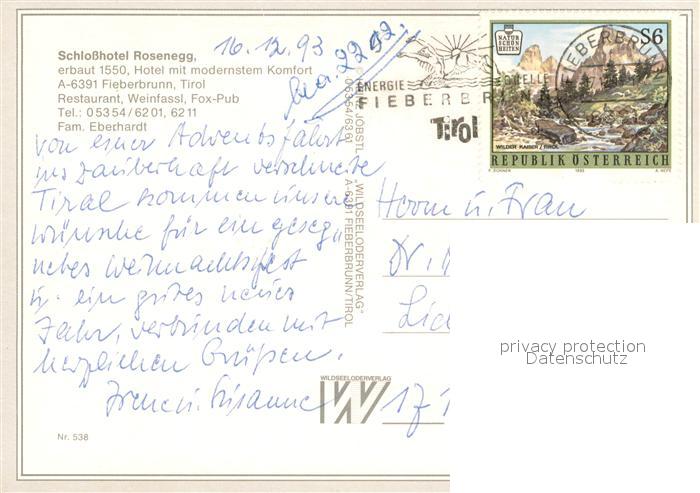 16.12.93
Schloßhotel Rosenegg,
erbaut 1550, Hotel mit modernstem Komfort
A-6391 Fieberbrunn, Tirol
Restaurant, Weinfassl, Fox-Pub
Tel.: 0 53 54 / 62 01, 62 11
Fam. Eberhardt
von einer Adventsfahrt
ins zauberhaft verschneite
Tirol kommen unsere
Wünsche für ein geseg„
netes Weihnachtsfest
u. ein gutes neues
Jahr, verbunden mit
herzlichen Grüßen.
Irene u. Susanne
Nr. 538
JÖBSTL
05354/6361
„WILDSEELODERVERLAG"
A-6391 FIEBERBRUNN/TIROL
WILDSEELODERVERLAG
ENERGIE QUELLE
FIEBERBRUNN
Tirol
FIEBERBRUNN
NATUR
SCHÖN
HEITEN
S6
WILDER KAISER / TIROL
REPUBLIK ÖSTERREICH
1993
Herrn u. Frau
Dr.
171
privacy protection
Datenschutz